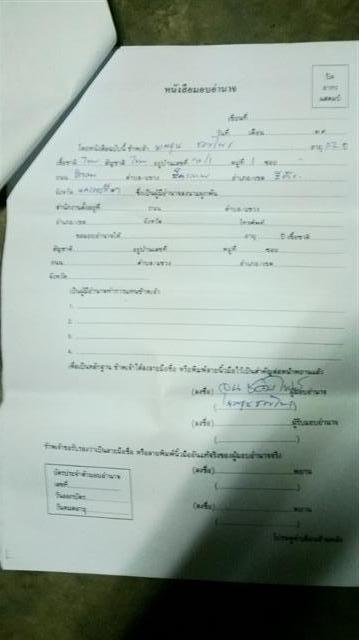 หนังสือมอบอำนาจ
ปิด
อากร
แสตมป์
เขียนที่
วันที่ เดือน พ.ศ.
โดยหนังสือฉบับนี้ ข้าพเจ้า อายุ ปี
เชื้อชาติ ไทย สัญชาติ ไทย อยู่บ้านเลขที่ หมู่ที่ 1 ซอย -
ถนน ตำบล/แขวง อำเภอ/เขต
จังหวัด นครราชสีมา ซึ่งเป็นผู้มีอำนาจลงนามผูกพัน
สำนักงานตั้งอยู่ที่ ถนน ตำบล/แขวง
อำเภอ/เขต จังหวัด โทรศัพท์
ขอมอบอำนาจให้ อายุ ปี เชื้อชาติ
สัญชาติ อยู่บ้านเลขที่ หมู่ที่ ซอย
ถนน ตำบล/แขวง อำเภอ/เขต
จังหวัด
เป็นผู้มีอำนาจทำการแทนข้าพเจ้า
1.
2.
3.
4.
เพื่อเป็นหลักฐาน ข้าพเจ้าได้ลงลายมือชื่อ หรือพิมพ์ลายนิ้วมือไว้เป็นสำคัญต่อหน้าพยานแล้ว
(ลงชื่อ) ผู้มอบอำนาจ
( )
(ลงชื่อ) ผู้รับมอบอำนาจ
( )
ข้าพเจ้าขอรับรองว่าเป็นลายมือชื่อ หรือลายพิมพ์นิ้วมืออันแท้จริงของผู้มอบอำนาจจริง
บัตรประจำตัวมอบอำนาจ
เลขที่
วันออกบัตร
วันหมดอายุ
(ลงชื่อ) พยาน
( )
(ลงชื่อ) พยาน
( )
โปรดดูคำเตือนด้านหลัง